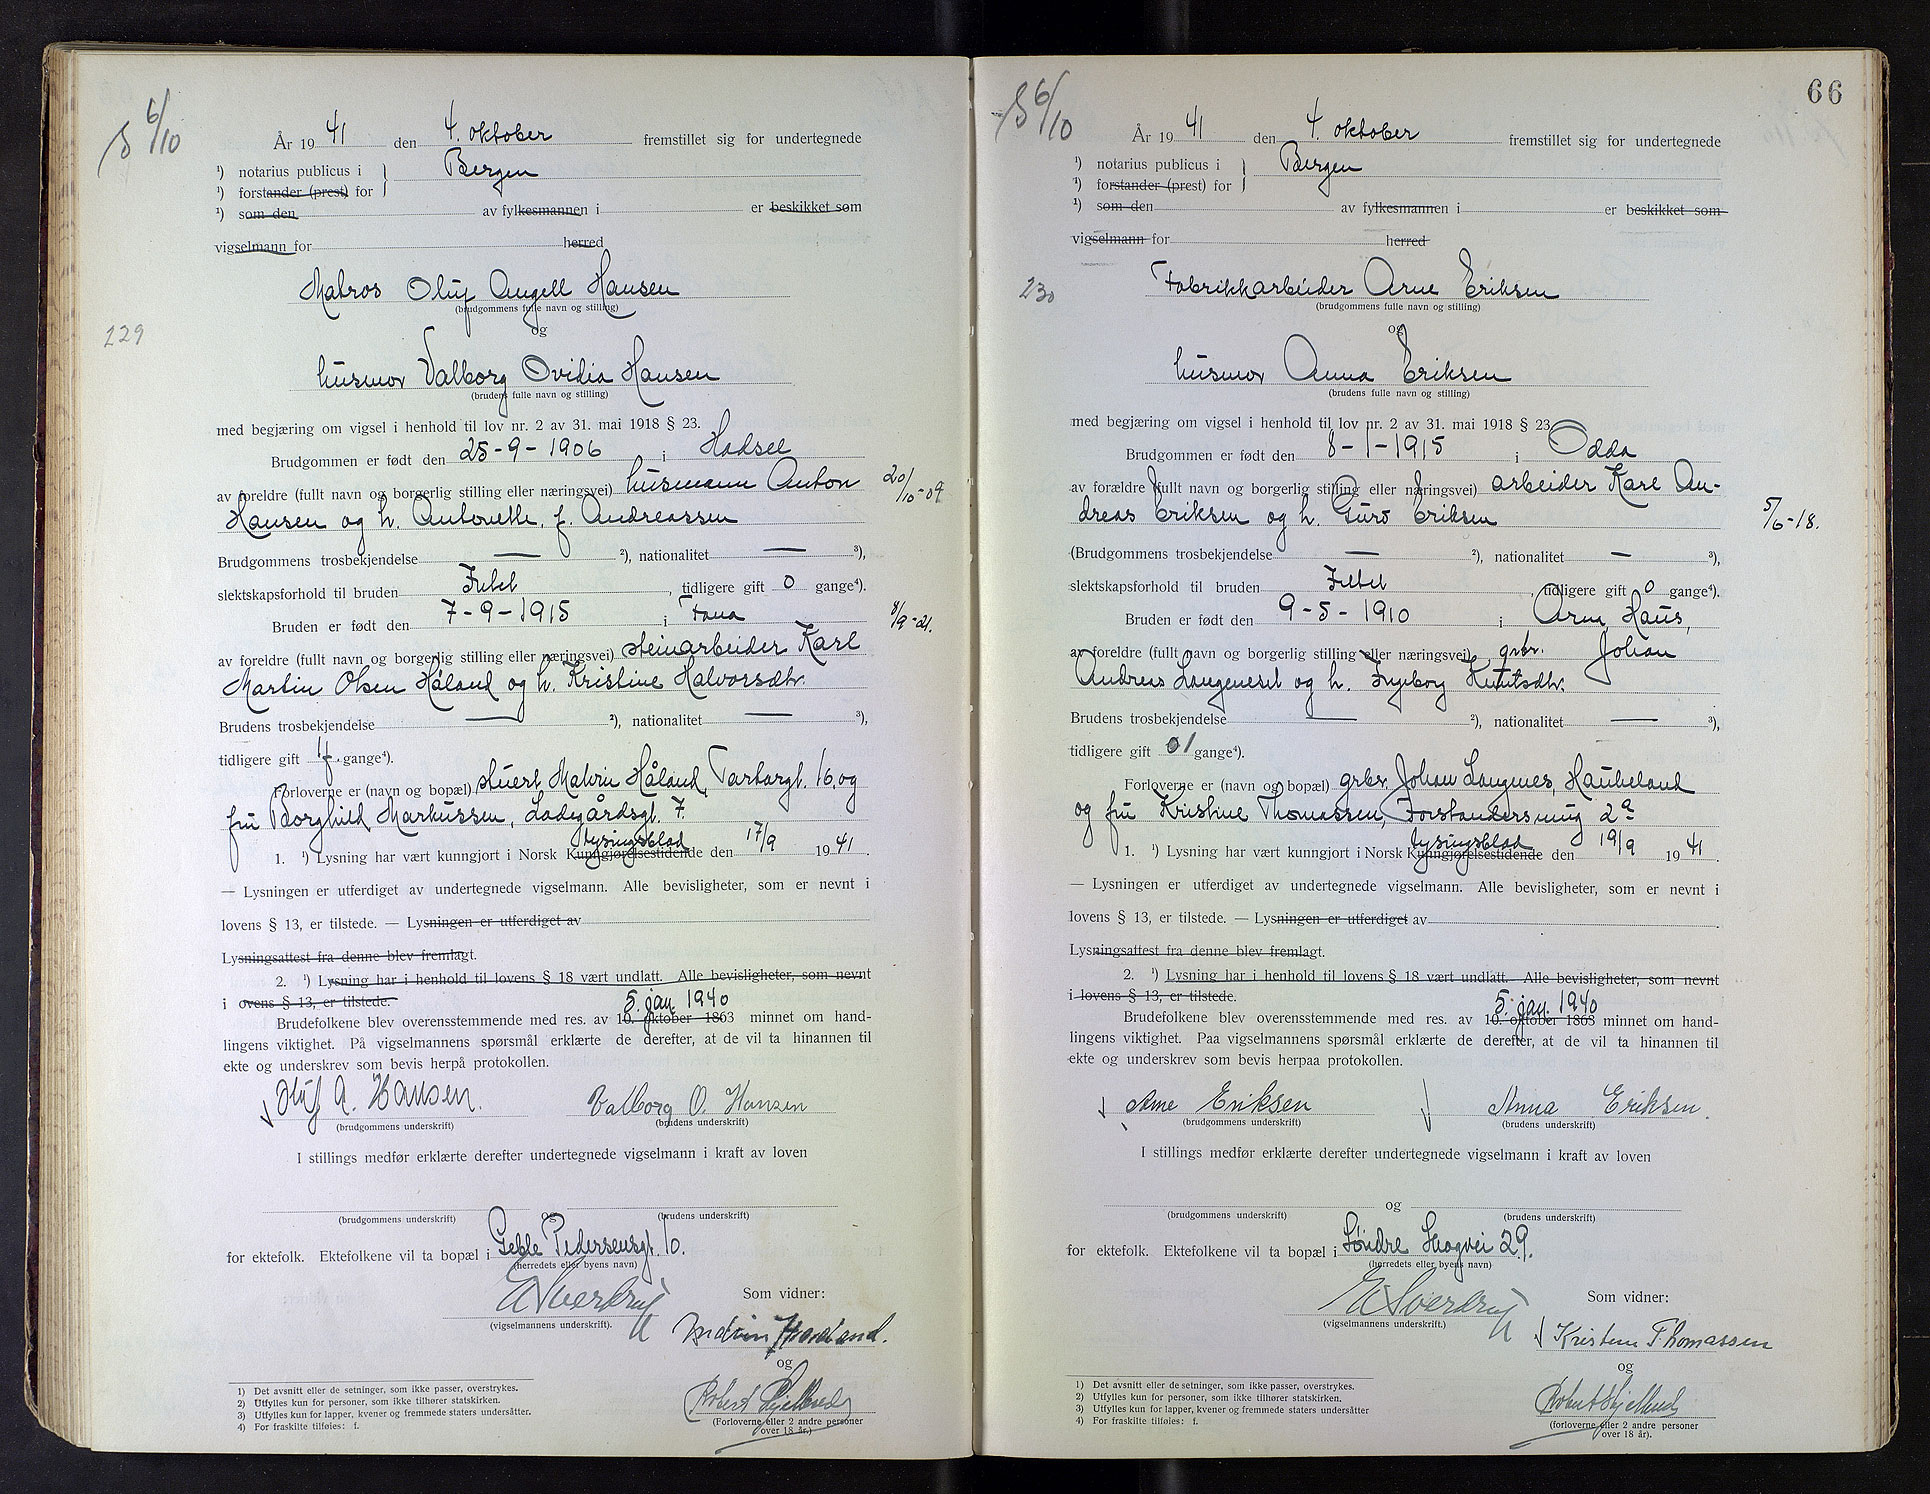 S 6/10
År 1941 den 4. oktober fremstillet sig for undertegnede
¹) notarius publicus i } Bergen
¹) forstander (prest) for
¹) som den av fylkesmannen i er beskikket som
vigselmann for herred
Matros Oluf Angell Hansen
(brudgommens fulle navn og stilling)
og
229
husmor Valborg Ovidia Hansen
(brudens fulle navn og stilling)
med begjæring om vigsel i henhold til lov nr. 2 av 31. mai 1918 § 23.
Brudgommen er født den 25-9-1906 i Hadsel
av foreldre (fullt navn og borgerlig stilling eller næringsvei) husmann Anton 20/10-09
Hansen og h. Antonette, f. Andreassen
Brudgommens trosbekjendelse — ²), nationalitet — ³),
slektskapsforhold til bruden Intet, tidligere gift 0 gange⁴).
Bruden er født den 7-9-1915 i Fana 8/9-21.
av foreldre (fullt navn og borgerlig stilling eller næringsvei) steinarbeider Karl
Martin Olsen Håland og h. Kristine Halvorsdtr.
Brudens trosbekjendelse — ²), nationalitet — ³),
tidligere gift 1f. gange⁴).
Forloverne er (navn og bopæl) stuert Malvin Håland, Tartargt. 16, og
fru Borghild Markussen, Ladegårdsgt. 7.
1. ¹) Lysning har vært kunngjort i Norsk Kunngjørelsestidende lysingsblad den 17/9 1941.
— Lysningen er utferdiget av undertegnede vigselmann. Alle bevisligheter, som er nevnt i
lovens § 13, er tilstede. — Lysningen er utferdiget av
Lysningsattest fra denne blev fremlagt.
2. ¹) Lysning har i henhold til lovens § 18 vært undlatt. Alle bevisligheter, som nevnt
i ovens § 13, er tilstede.
5. jan. 1940
Brudefolkene blev overensstemmende med res. av 10. oktober 1863 minnet om hand-
lingens viktighet. På vigselmannens spørsmål erklærte de derefter, at de vil ta hinannen til
ekte og underskrev som bevis herpå protokollen.
Oluf A. Hansen. Valborg O. Hansen
(brudgommens underskrift) (brudens underskrift)
I stillings medfør erklærte derefter undertegnede vigselmann i kraft av loven
og
(brudgommens underskrift) (brudens underskrift)
for ektefolk. Ektefolkene vil ta bopæl i Geble Pedersensgt. 10.
(herredets eller byens navn)
E Sverdrup
Som vidner:
(vigselmannens underskrift).
Malvin Haaland.
og
Robert Skjelbred
(Forloverne eller 2 andre personer
over 18 år.)
1) Det avsnitt eller de setninger, som ikke passer, overstrykes.
2) Utfylles kun for personer, som ikke tilhører statskirken.
3) Utfylles kun for lapper, kvener og fremmede staters undersåtter.
4) For fraskilte tilføies: f.
66
S 6/10
År 1941 den 4. oktober fremstillet sig for undertegnede
¹) notarius publicus i } Bergen
¹) forstander (prest) for
¹) som den av fylkesmannen i er beskikket som
vigselmann for herred
230
Fabrikkarbeider Arne Eriksen
(brudgommens fulle navn og stilling)
og
husmor Anna Eriksen
(brudens fulle navn og stilling)
med begjæring om vigsel i henhold til lov nr. 2 av 31. mai 1918 § 23.
Brudgommen er født den 8-1-1915 i Odda
av forældre (fullt navn og borgerlig stilling eller næringsvei) arbeider Karl An-
dreas Eriksen og h. Guro Eriksen 5/6-18.
(Brudgommens trosbekjendelse — ²), nationalitet — ³),
slektskapsforhold til bruden Intet, tidligere gift 0 gange⁴).
Bruden er født den 9-5-1910 i Arna, Haus,
av foreldre (fullt navn og borgerlig stilling eller næringsvei) grbr. Johan
Andreas Langeneset og h. Ingeborg Knutsdtr.
Brudens trosbekjendelse — ²), nationalitet — ³),
tidligere gift 01 gange⁴).
Forloverne er (navn og bopæl) grbr. Johan Langnes, Haukeland
og fru Kristine Thomassen, Forstandersmug 2a
1. ¹) Lysning har vært kunngjort i Norsk Kunngjørelsestidende lysingsblad den 19/9 1941.
— Lysningen er utferdiget av undertegnede vigselmann. Alle bevisligheter, som er nevnt i
lovens § 13, er tilstede. — Lysningen er utferdiget av
Lysningsattest fra denne blev fremlagt.
2. ¹) Lysning har i henhold til lovens § 18 vært undlatt. Alle bevisligheter, som nevnt
i lovens § 13, er tilstede.
5. jan. 1940
Brudefolkene blev overensstemmende med res. av 10. oktober 1863 minnet om hand-
lingens viktighet. Paa vigselmannens spørsmål erklærte de derefter, at de vil ta hinannen til
ekte og underskrev som bevis herpaa protokollen.
Arne Eriksen Anna Eriksen.
(brudgommens underskrift) (brudens underskrift)
I stillings medfør erklærte derefter undertegnede vigselmann i kraft av loven
og
(brudgommens underskrift) (brudens underskrift)
for ektefolk. Ektefolkene vil ta bopæl i Søndre Skogvei 29.
(herredets eller byens navn)
E Sverdrup
Som vidner:
(vigselmannens underskrift.)
Kristine Thomassen
og
Robert Skjelbred
(forloverne eller 2 andre personer
over 18 år).
1) Det avsnitt eller de setninger, som ikke passer, overstrykes.
2) Utfylles kun for personer, som ikke tilhører statskirken.
3) Utfylles kun for lapper, kvener og fremmede staters undersåtter
4) For fraskilte tilføies: f.